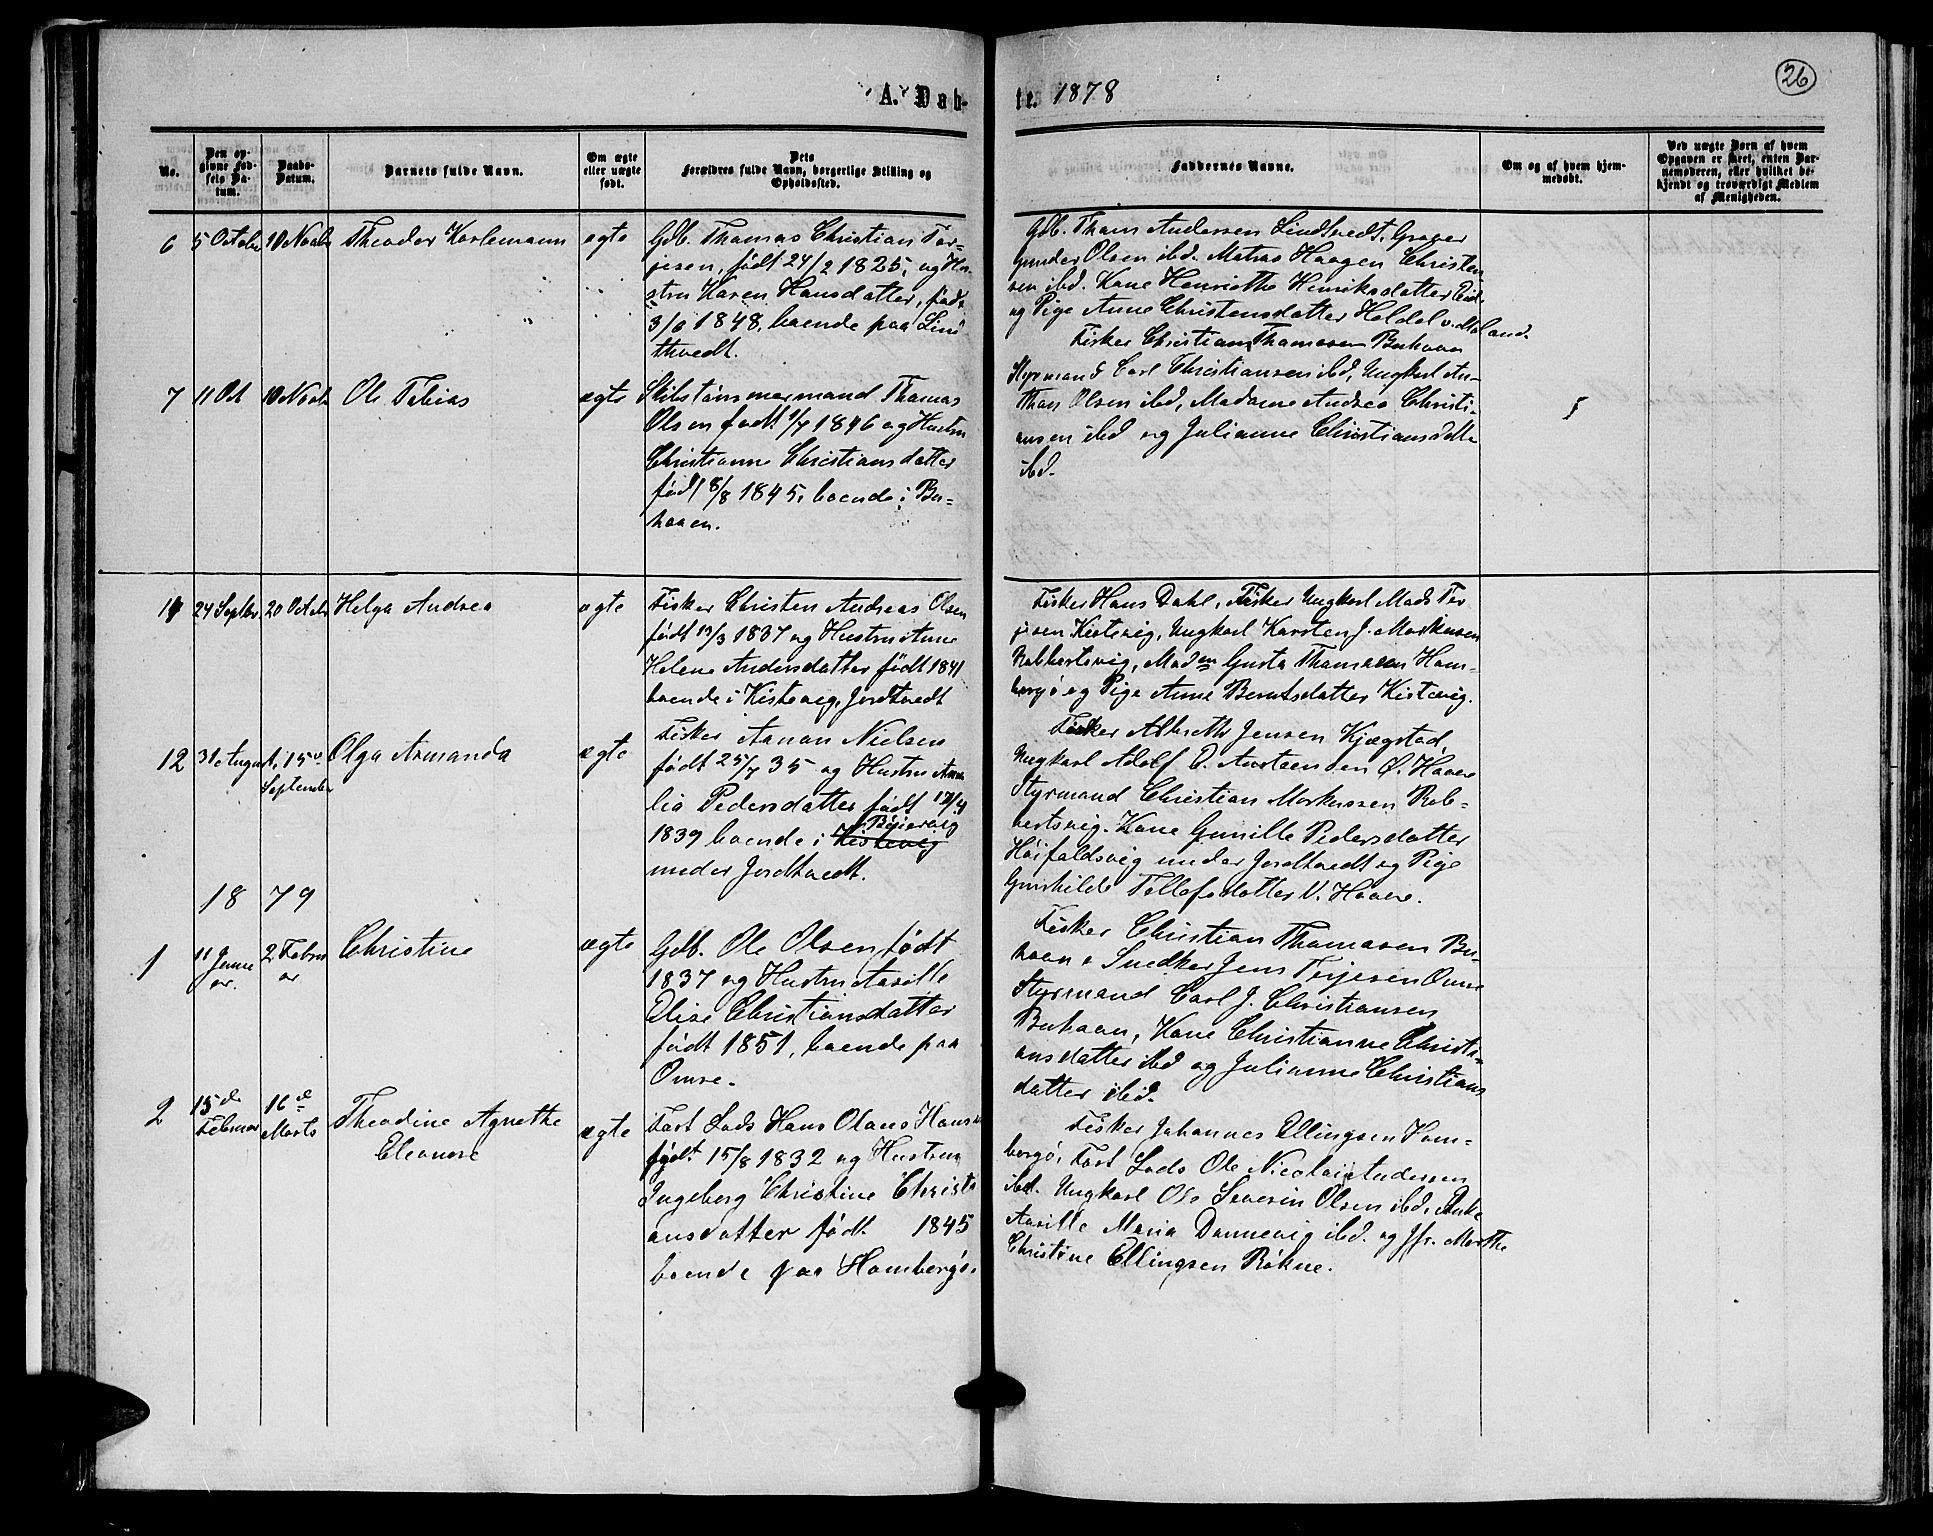 A. Døb-
te. 1878
26
No.
Den op-
givne Fød-
sels Da-
tum.
Daabs-
Datum.
Barnets fulde Navn.
Om ægte
eller uægte
født.
Dets
Forældres fulde Navn, borgerlige Stilling og
Opholdssted.
Faddernes Navne.
Om og af hvem hjem-
medøbt.
Ved uægte Børn af hvem
Opgaven er skeet, enten Bar-
nemoderen, eller hvilket be-
kjendt og troværdigt Medlem
af Menigheden.
6 5 October 10 Novbr Theodor Karlemann ægte
Gdb. Thomas Christian Ter-
jesen, født 24/2 1825, og Hu-
stru Karen Hansdatter, født
1848, boende paa Lind
thvedt.
Gdb. Thom Andersen Lindtvedt,
Gunder Olsen ibd. Matros Haagen Christen
sen ibd. Kone Henriethe Henriksdatter
og Pige Anne Christensdatter Holdal v. Moland.
7 11 Oct 10 Novbr Ole Tobias ægte
Skibstømmermand Thomas
Olsen født 1/7 1846 og Hustru
Christianne Christiansdatter
født 8/8 1845, boende i Bu-
haaen.
Fisker Christian Thomasen Buhaaen
Styrmand Carl Christiansen ibd, Ungkarl An-
than Olsen ibd, Madame Andrea Christi-
ansen ibd og Julianne Christiansdatter
ibd.
11 24 Septbr. 20 Octobr Helga Andrea ægte
Fisker Christen Andreas Olsen
født 13/3 1837 og Hustru Anne
Helene Andersdatter født 1841
boende i Kistevig, Jordtvedt
Fisker Hans Dahl, Fisker Ungkarl Mads Ter
jesen Kistevig, Ungkarl Karsten J. Markusen
Robbertsvig, Madm Gusta Thomasen Hom-
borgø og Pige Anne Berntsdatter Kistevig.
12 31 August 15de
September
Olga Armanda ægte
Fisker Aanon Nielsen
født 25/7 35 og Hustru Ama
lia Pedersdatter født 17/4
1839 boende i Kistevig
under Jordtvedt.
Fisker Albreth Jensen Kjægstad,
Ungkarl Adolf O. Austeensen Ø. Haave
Styrmand Christian Markussen Rob-
bertsvig. Kone Gunille Pedersdatter
Høifaldsvig under Jordtvedt og Pige
Gunhilde Tellefsdatter V. Haave.
18 79
1 11 Janu
ar. 2 Febru
ar
Christine ægte
Gdb. Ole Olsen født
1837 og Hustru Aasille
Elise Christiansdatter
født 1851, boende paa
Omre.
Fisker Christian Thomasen Bu-
haaen, Snedker Jens Terjesen Omre
Styrmand Carl J. Christiansen
Buhaaen, Kone Christianne Christi-
ansdatter ibd og Julianne Christians
datter ibd.
2 15de
Februar
16de
Marts
Theodine Agnethe
Eleonore
ægte
Fast Lods Hans Olaus Hansen
født 15/8 1832 og Hustru
Ingeborg Christine Christi
ansdatter født 1845
boende paa Homborgø.
Fisker Johannes Ellingsen Hom-
borgø, Fast Lods Ole Nicolai Andersen
ibd. Ungkarl Ole Severin Olsen ibd, Enke
Aasille Maria Dannevig ibd. og Jfr. Marthe
Christine Ellingsen Røkne.